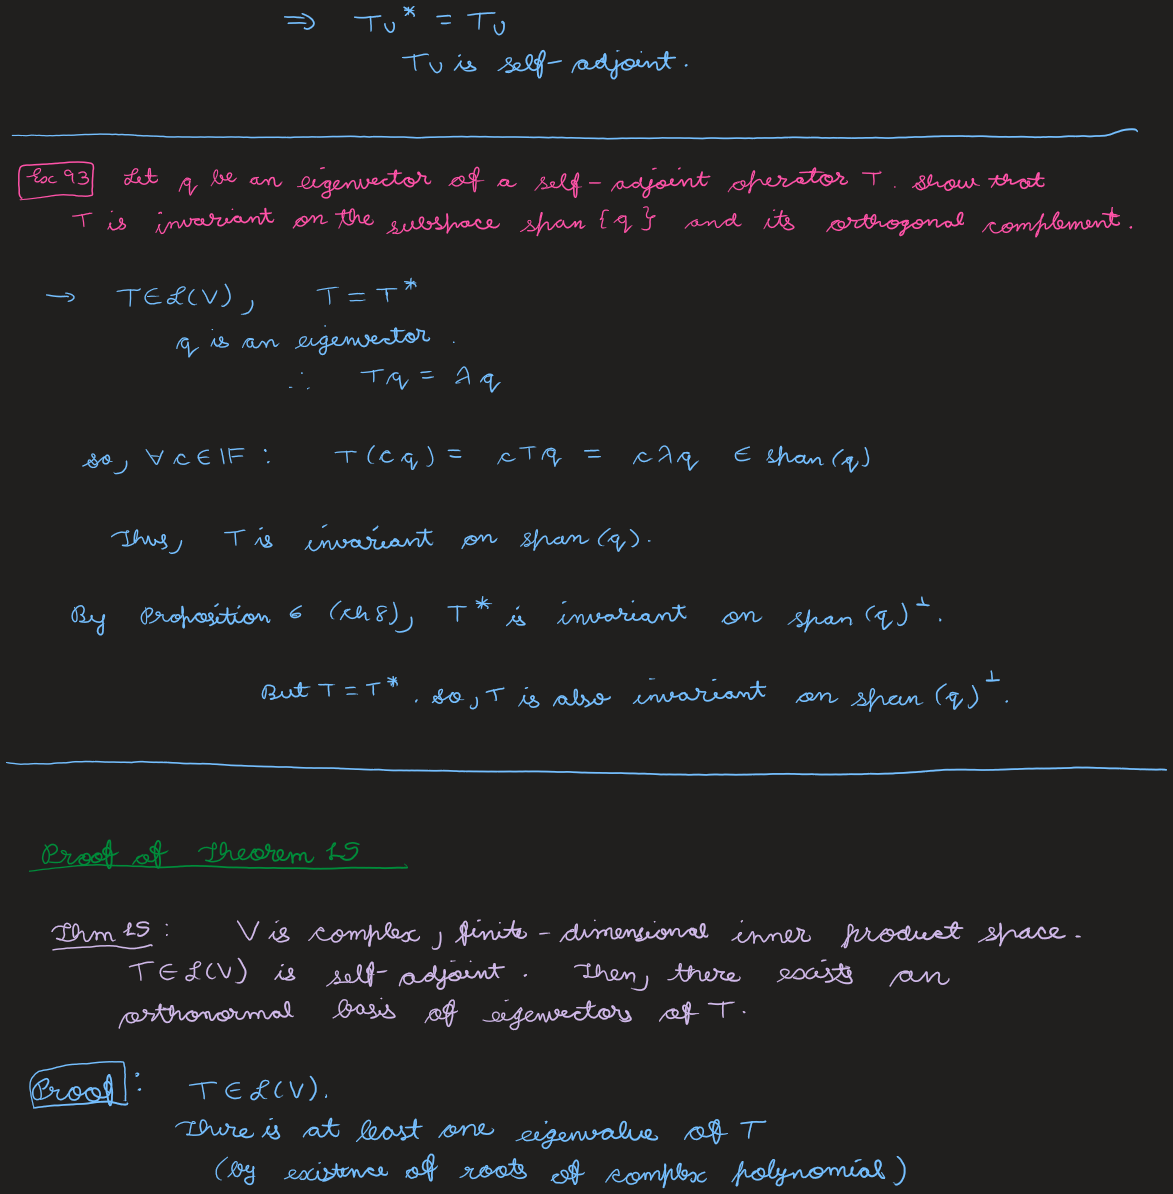 ⇒ T_U* = T_U
T_U is self-adjoint.
Exc 93 Let q be an eigenvector of a self-adjoint operator T. Show that
T is invariant on the subspace span {q} and its orthogonal complement.
→ T∈ℒ(V), T = T*
q is an eigenvector.
∴ Tq = λq
so, ∀c∈𝔽 : T(cq) = cTq = cλq ∈ span(q)
Thus, T is invariant on span(q).
By Proposition 6 (ch 8), T* is invariant on span(q)^⊥.
But T = T*. So, T is also invariant on span(q)^⊥.
Proof of Theorem 15
Thm 15 : V is complex, finite-dimensional inner product space.
T∈ℒ(V) is self-adjoint. Then, there exists an
orthonormal basis of eigenvectors of T.
Proof : T∈ℒ(V).
There is at least one eigenvalue of T
(by existence of roots of complex polynomial)